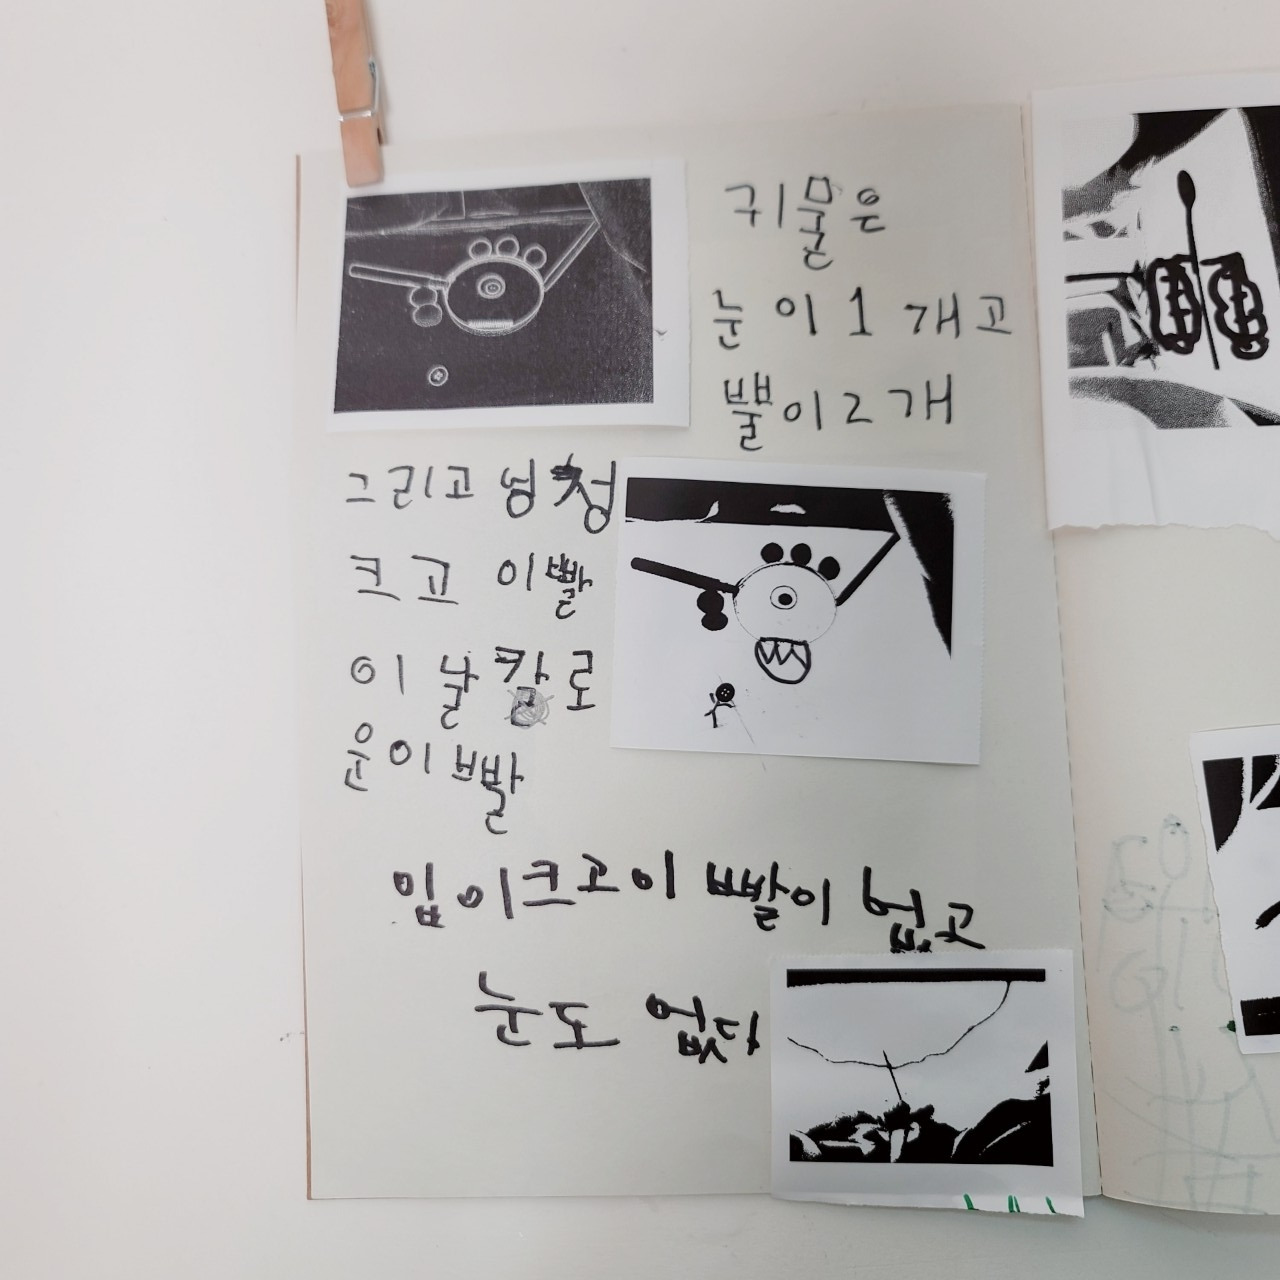 귀물은
눈이1개고
뿔이2개
그리고 엉청
크고 이빨
이 날캄로
운이빨
입이크고이빨이 없고
눈도 없다